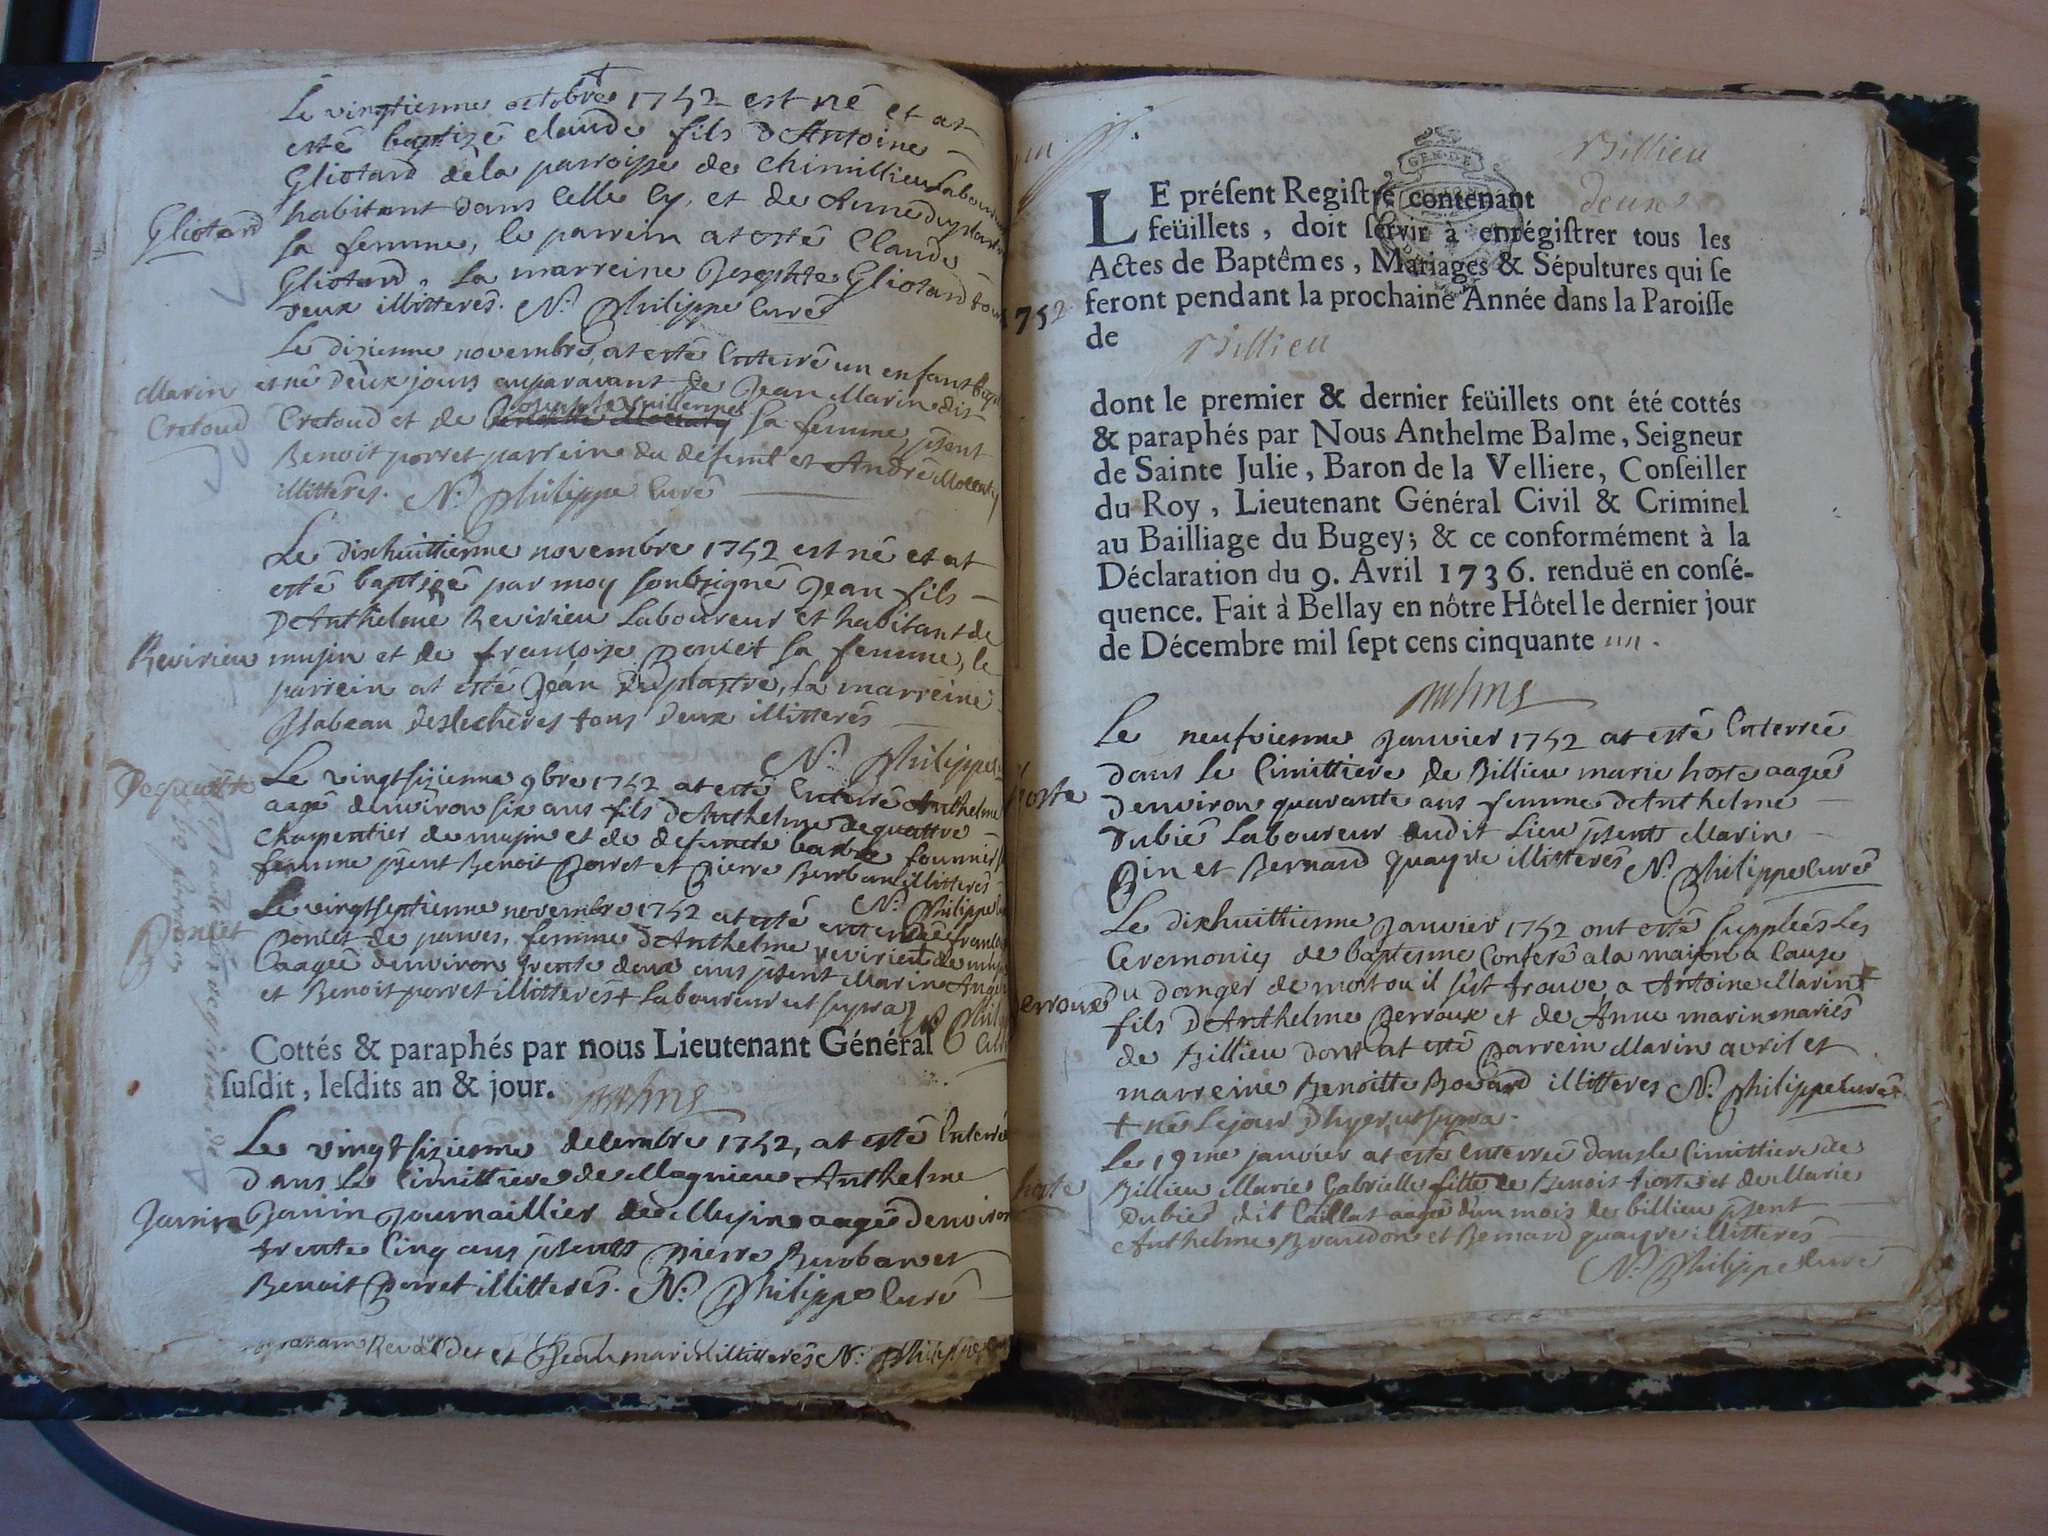 Le vingtienne octobre 1752 est né et at
esté baptizé claude fils d'Antoine
Gliotard dela parroisse de Chimillieu Laboureur
Gliotard
habitant dans celle cy, et de Anne
sa femme, le parrein at esté Claude
Gliotard, La marreine Josephte Gliotard tous
deux illitterés. N. Philippe curé
Le dizienne novembre, at esté Enterré un enfant
Marin
et né deux jours auparavant de Jean Marin dit
Cretoud
Cretoud et de sa femme, psent
Benoit porret parrein du defunt et André
illitterés. N. Philippe curé
Le dixhuittienne novembre 1752 est né et at
esté baptizé par moy soubsigné Jean fils
D'Anthelme Revirieu Laboureur et habitant de
Revirieu
musin et de francoise Poncet sa femme, le
parrein at esté Jean Duplastre, la marreine
Isabeau deslecheres tous deux illitterés
N. Philippe
Dequattre
Le vingtsizienne 9bre 1752 at esté Enterré Anthelme
aagé denviron six ans fils d'Anthelme dequattre
charpentier de musin et de defunte fournier
femme psent Benoit Porret et Pierre Burban illitterés
N. Philippe
Le vingtseptienne novembre 1752 at esté enterrée
Poncet
Poncet de parves, femme d'Anthelme revirieu de
aagée denviron trente deux ans psent Marin
et Benoit porret illitterés + Laboureur ut supra
Cottés & paraphés par nous Lieutenant Général
susdit, lesdits an & jour.
Le vingtsizienne decembre 1752, at esté Enterré
dans Le Cimittiere de Magnieu Anthelme
Janin
Janin Journaillier de Musin aagé denviron
trente cinq ans psents Pierre Burban et
Benoit Porret illitterés. N. Philippe curé
et Jean marin illitterés N. Philippe
Billieu
LE présent Registre contenant deux
feüillets, doit servir à enrégistrer tous les
Actes de Baptêmes, Mariages & Sépultures qui se
feront pendant la prochaine Année dans la Paroisse
1752
de Billieu
dont le premier & dernier feüillets ont été cottés
& paraphés par Nous Anthelme Balme, Seigneur
de Sainte Julie, Baron de la Velliere, Conseiller
du Roy, Lieutenant Général Civil & Criminel
au Bailliage du Bugey; & ce conformément à la
Déclaration du 9. Avril 1736. renduë en consé-
quence. Fait à Bellay en nôtre Hôtel le dernier jour
de Décembre mil sept cens cinquante un.
Le neufvienne Janvier 1752 at esté Enterrée
dans Le Cimittiere de Billieu marie hoste aagée
hoste
denviron quarante ans femme d'Anthelme
Dubié Laboureur dudit Lieu psents Marin
Pin et Bernard quayre illitterés N. Philippe curé
Le dixhuittienne Janvier 1752 ont esté supplées Les
Ceremonies de baptesme Conferé a la maison a Cause
du danger de mort ou il s'est trouvé, a Antoine Marin +
Perroux
fils d'Anthelme Perroux et de Anne marin mariés
de Billieu dont at esté parrein Marin avril et
marreine Benoitte Bovard illitterés N. Philippe curé
+ né Le jour d'hyer ut supra.
Le 19me janvier at esté enterrée dans le Cimittiere de
hoste
Billieu Marie Gabrielle fille de Benoit hoste et de Marie
Dubié dit Caillat aagée d'un mois de billieu psent
Anthelme Brandon et Bernard quayre illitterés
N. Philippe curé